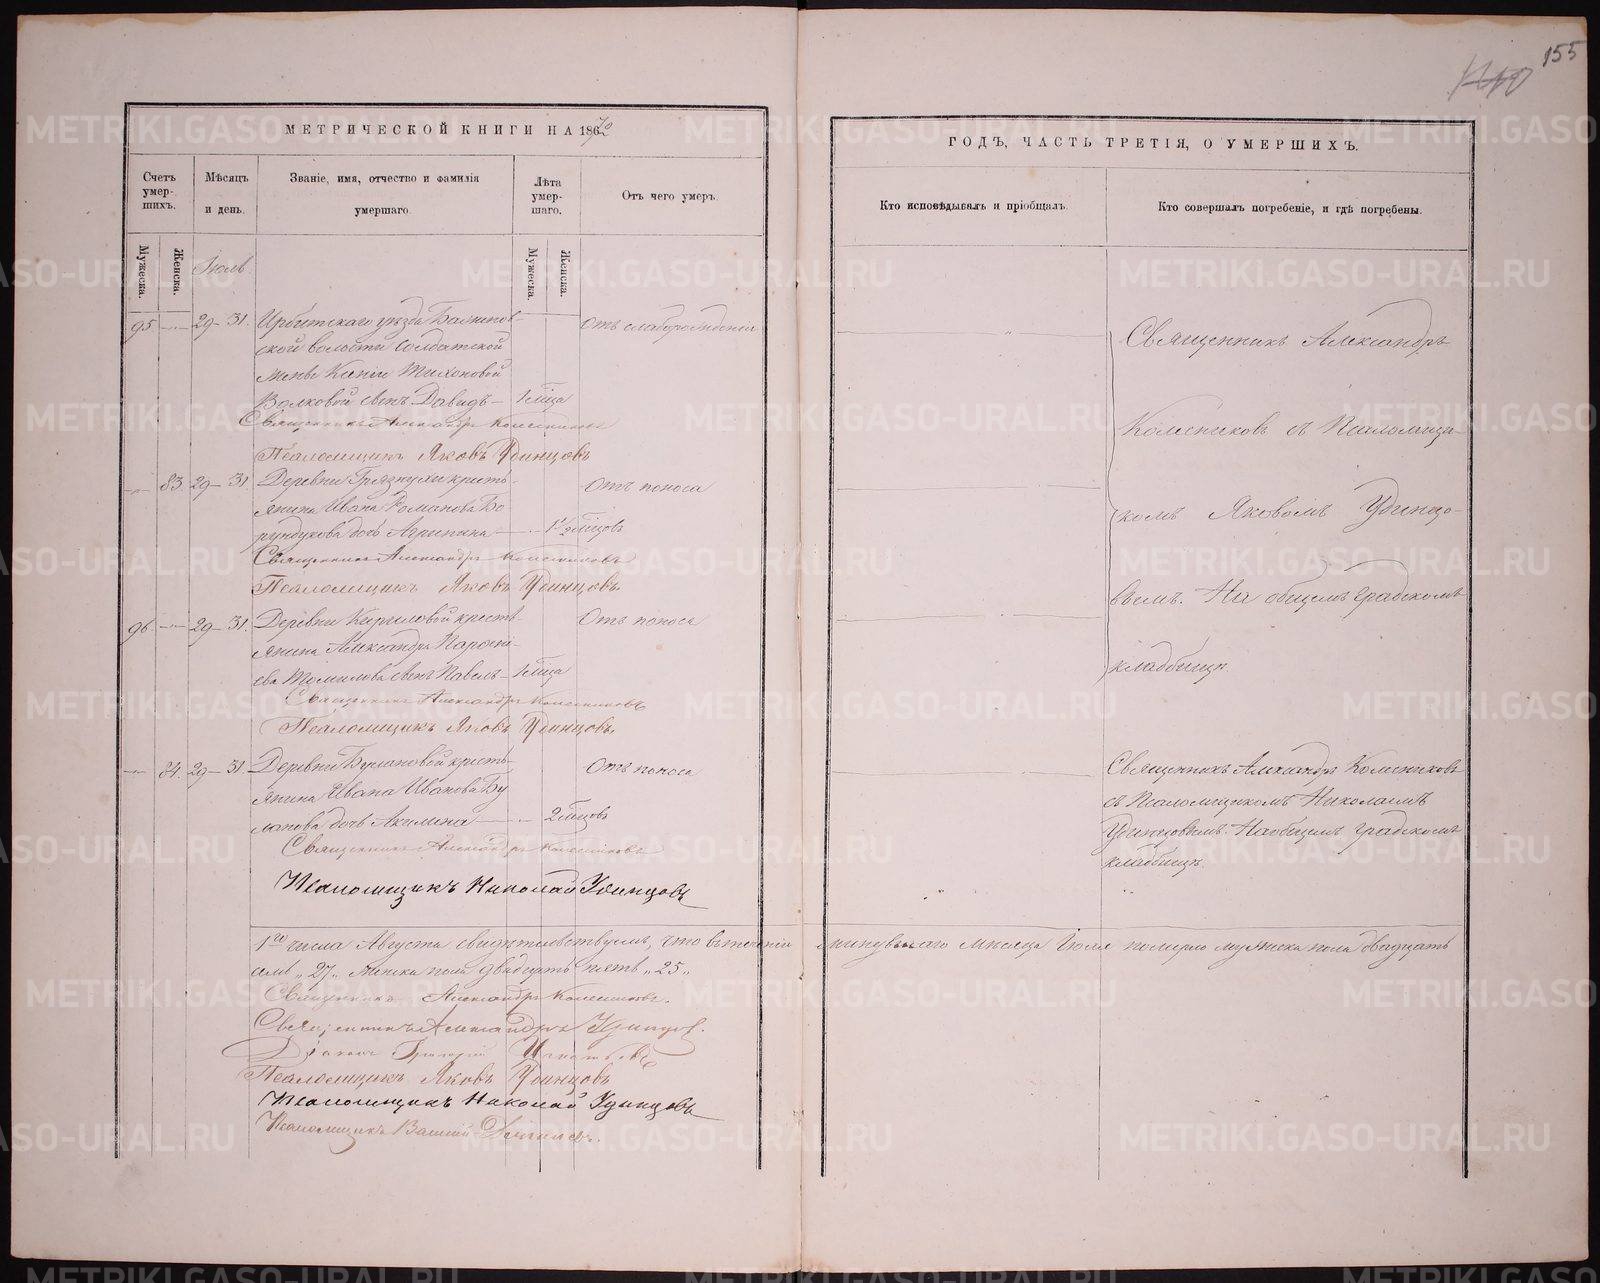 155
МЕТРИЧЕСКОЙ КНИГИ НА 1870
ГОДЪ, ЧАСТЬ ТРЕТІЯ, О УМЕРШИХЪ.
Счетъ умер-шихъ.
Мѣсяцъ и день.
Званіе, имя, отчество и фамилія умершаго.
Лѣта умер-шаго.
Отъ чего умеръ.
Кто исповѣдывалъ и пріобщалъ.
Кто совершалъ погребеніе, и гдѣ погребены.
Мужеска.
Женска.
Мужеска.
Женска.
Іюль
95 29 31. Ирбитскаго уѣзда
ской волости солдатской
женки Ксеніи Тихоновой
Волковой сынъ Давидъ 1 мѣсяца
Отъ слаборожденія
Священникъ Александръ Колесниковъ
Псаломщикъ Яковъ Удинцовъ
83. 29 31. Деревни Грязнухи кресть-
янина Ивана Романова Бо-
рундукова дочь Агрипина 1 1/2 мѣсяцовъ
Отъ поноса
Священникъ Александръ Колесниковъ
Псаломщикъ Яковъ Удинцовъ.
96 29 31. Деревни Кириловой кресть-
янина Александра
ева Томилова сынъ Павелъ 1 мѣсяца
Отъ поноса
Священникъ Александръ Колесниковъ
Псаломщикъ Яковъ Удинцовъ.
84. 29 31 Деревни Булановой кресть-
янина Ивана Иванова Бу
ланова дочь Акилина 2 мѣсяцовъ
Отъ поноса
Священникъ Александръ Колесниковъ
Псаломщикъ Николай Удинцовъ
Священникъ Александръ
Колесниковъ съ Псаломщи-
комъ Яковомъ Удинцо-
вымъ. На общемъ градскомъ
кладбищѣ.
Священникъ Александръ Колесниковъ
съ Псаломщикомъ Николаемъ
Удинцовымъ. На общемъ градскомъ
кладбищѣ.
1го числа Августа свидѣтельствуемъ, что въ теченіи минувшаго мѣсяца Іюля померло мужеска пола двадцать
семь „27„ женска пола двадцать пять „25„
Священникъ Александръ Колесниковъ.
Священникъ Александръ Удинцов.
Діаконъ Григорій Игнатьевъ
Псаломщикъ Яковъ Удинцовъ
Псаломщикъ Николай Удинцовъ
Псаломщикъ Василій
METRIKI.GASO-URAL.RU